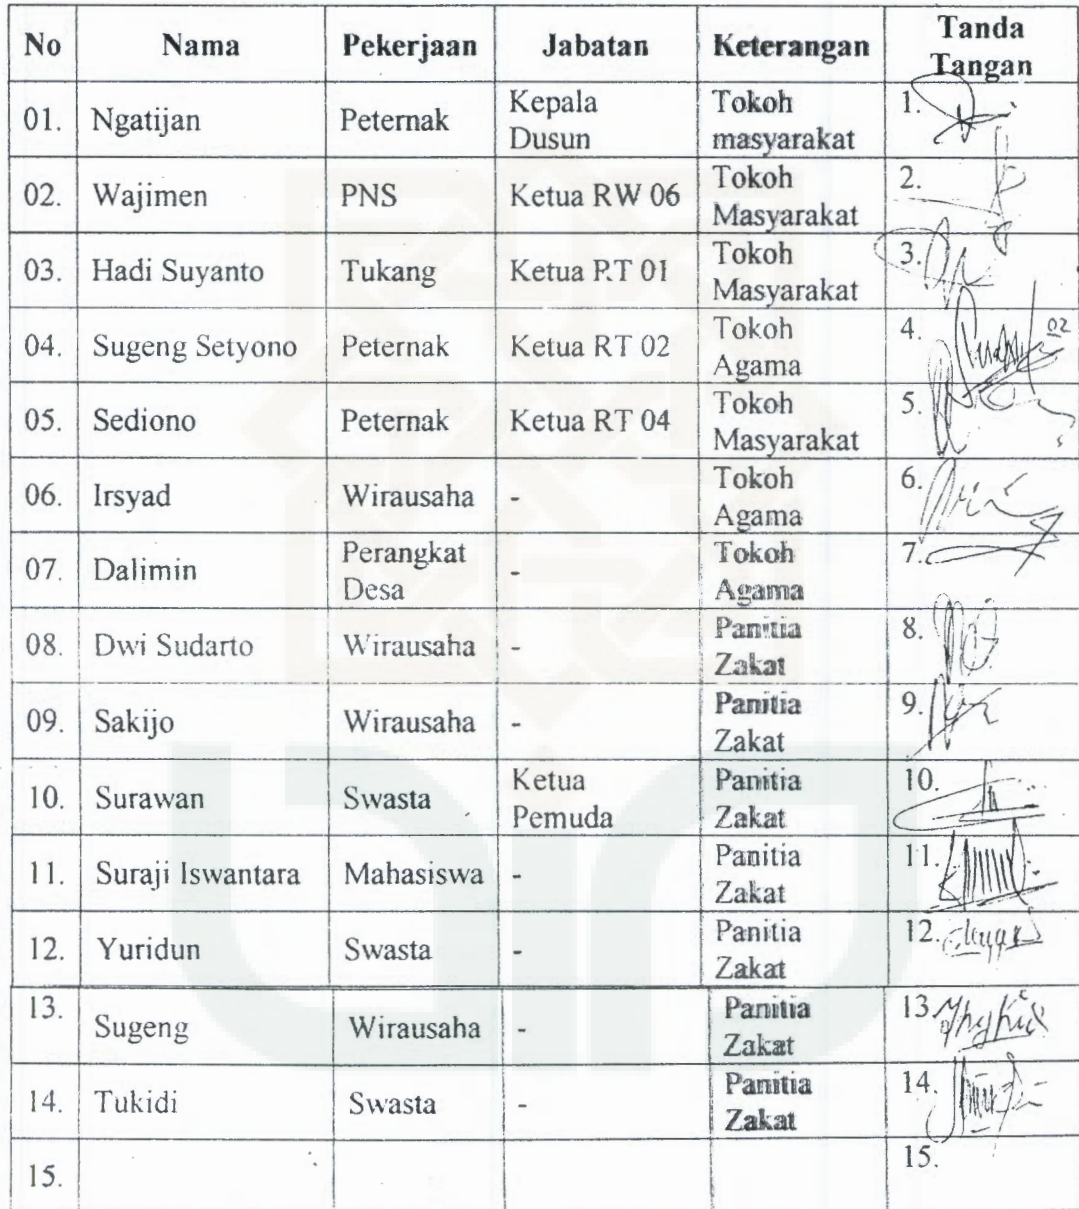 No Nama Pekerjaan Jabatan Keterangan Tanda Tangan
01. Ngatijan Peternak Kepala Dusun Tokoh masyarakat 1.
02. Wajimen PNS Ketua RW 06 Tokoh Masyarakat 2.
03. Hadi Suyanto Tukang Ketua RT 01 Tokoh Masyarakat 3.
04. Sugeng Setyono Peternak Ketua RT 02 Tokoh Agama 4. 02
05. Sediono Peternak Ketua RT 04 Tokoh Masyarakat 5.
06. Irsyad Wirausaha - Tokoh Agama 6.
07. Dalimin Perangkat Desa - Tokoh Agama 7.
08. Dwi Sudarto Wirausaha - Panitia Zakat 8.
09. Sakijo Wirausaha - Panitia Zakat 9.
10. Surawan Swasta Ketua Pemuda Panitia Zakat 10.
11. Suraji Iswantara Mahasiswa - Panitia Zakat 11.
12. Yuridun Swasta - Panitia Zakat 12.
13. Sugeng Wirausaha - Panitia Zakat 13
14. Tukidi Swasta - Panitia Zakat 14.
15. 15.